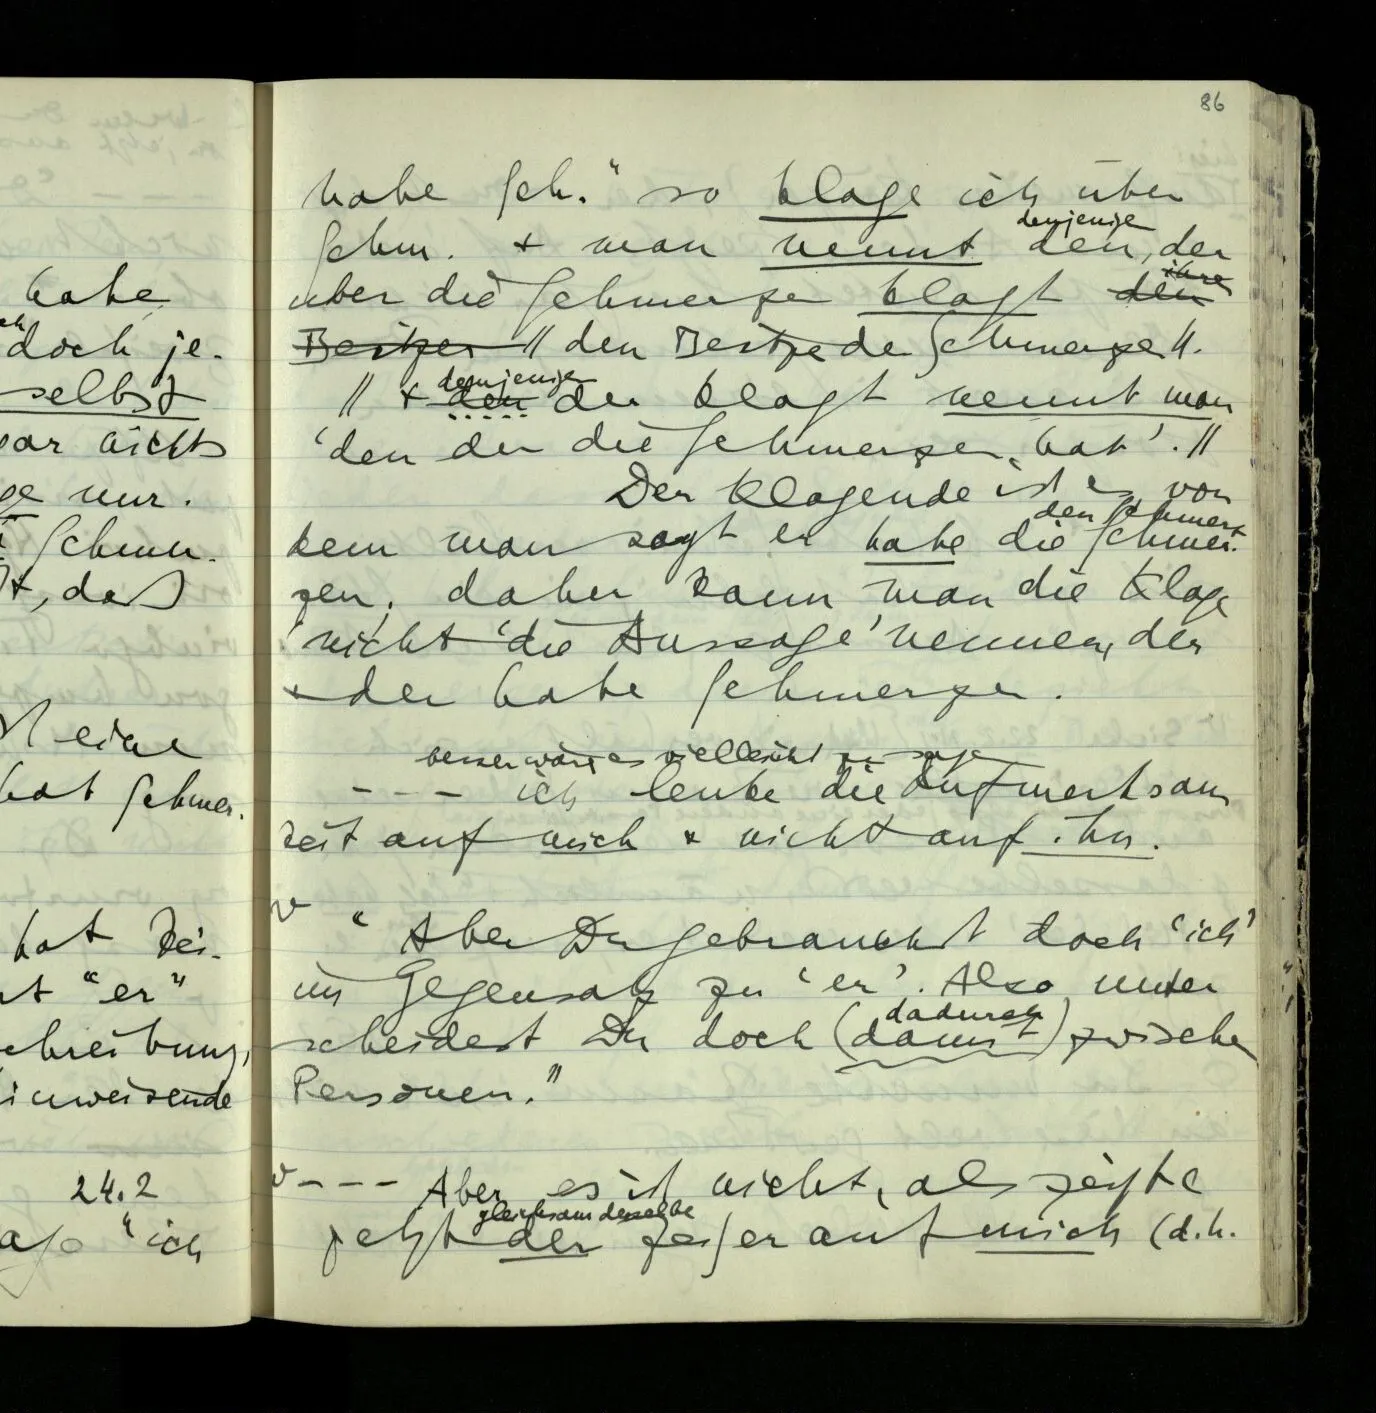 habe
doch je-
selbst
gar nichts
ge nur.
Schmer-
t, daß
eine
hat Schmer-
hat kei-
"er"
chreibung,
inweisende
24.2
"ich
86
habe Sch." so klage ich über
Schm. + man nennt den, der
denjenigen
über die Schmerzen klagt den
ihren
Besitzer // den Besitzer der Schmerzen //.
// + den der klagt nennt man
denjenigen
'den der die Schmerzen hat'. //
Der Klagende ist es, von
dem man sagt er habe die Schmer-
den Schmerz
zen; daher kann man die Klage
nicht 'die Aussage' nennen, der
+ der habe Schmerzen.
besser wäre es vielleicht zu sagen
--- ich lenke die Aufmerksam
keit auf mich + nicht auf ihn.
v "Aber Du gebrauchst doch 'ich'
im Gegensatz zu 'er'. Also unter
scheidest Du doch (damit) zwischen
dadurch
Personen."
v --- Aber es ist nicht, als zeigte
jetzt der Zeiger auf mich (d.h.
gleichsam derselbe